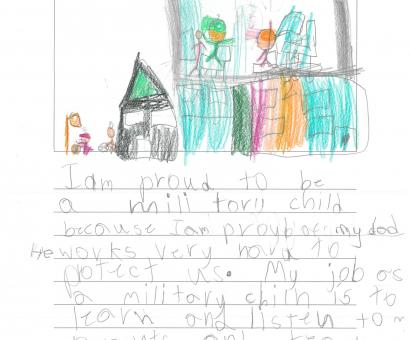 I am proud to be
a militory child
because I am proyb of my dad
He works very hard to
potect us. My job as
a military chiln is to
learn and listen to m
parents and